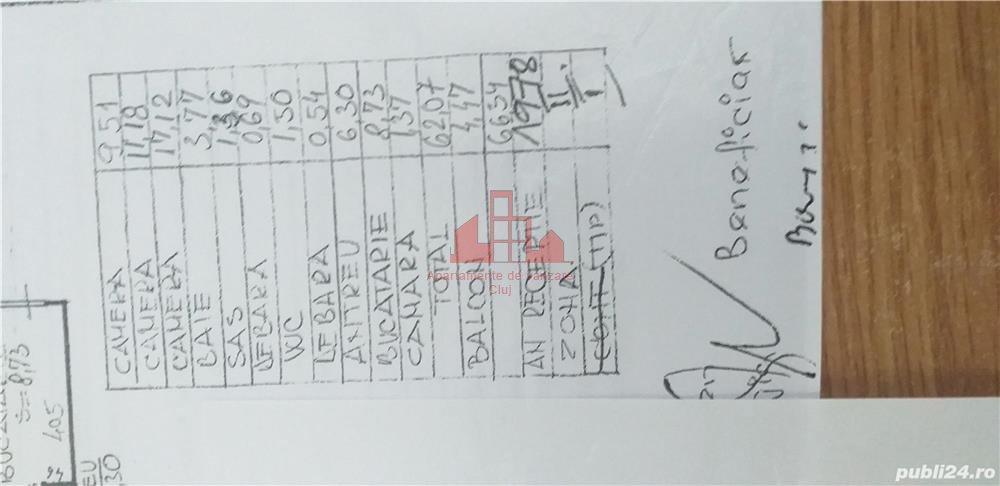 CAMERA 9,51
CAMERA 11,18
CAMERA 17,12
BAIE 3,77
SAS 1,36
DEBARA 0,69
WC 1,30
DEBARA 0,54
ANTREU 6,30
BUCATARIE 8,73
CAMARA 1,37
TOTAL 62,07
BALCON 4,47
66 54
AN RECEPTIE 1978
ZONA II
I
Beneficiar
S=8,73
405
94
EU
,30
Apartamente de vanzare
Cluj
publi24.ro